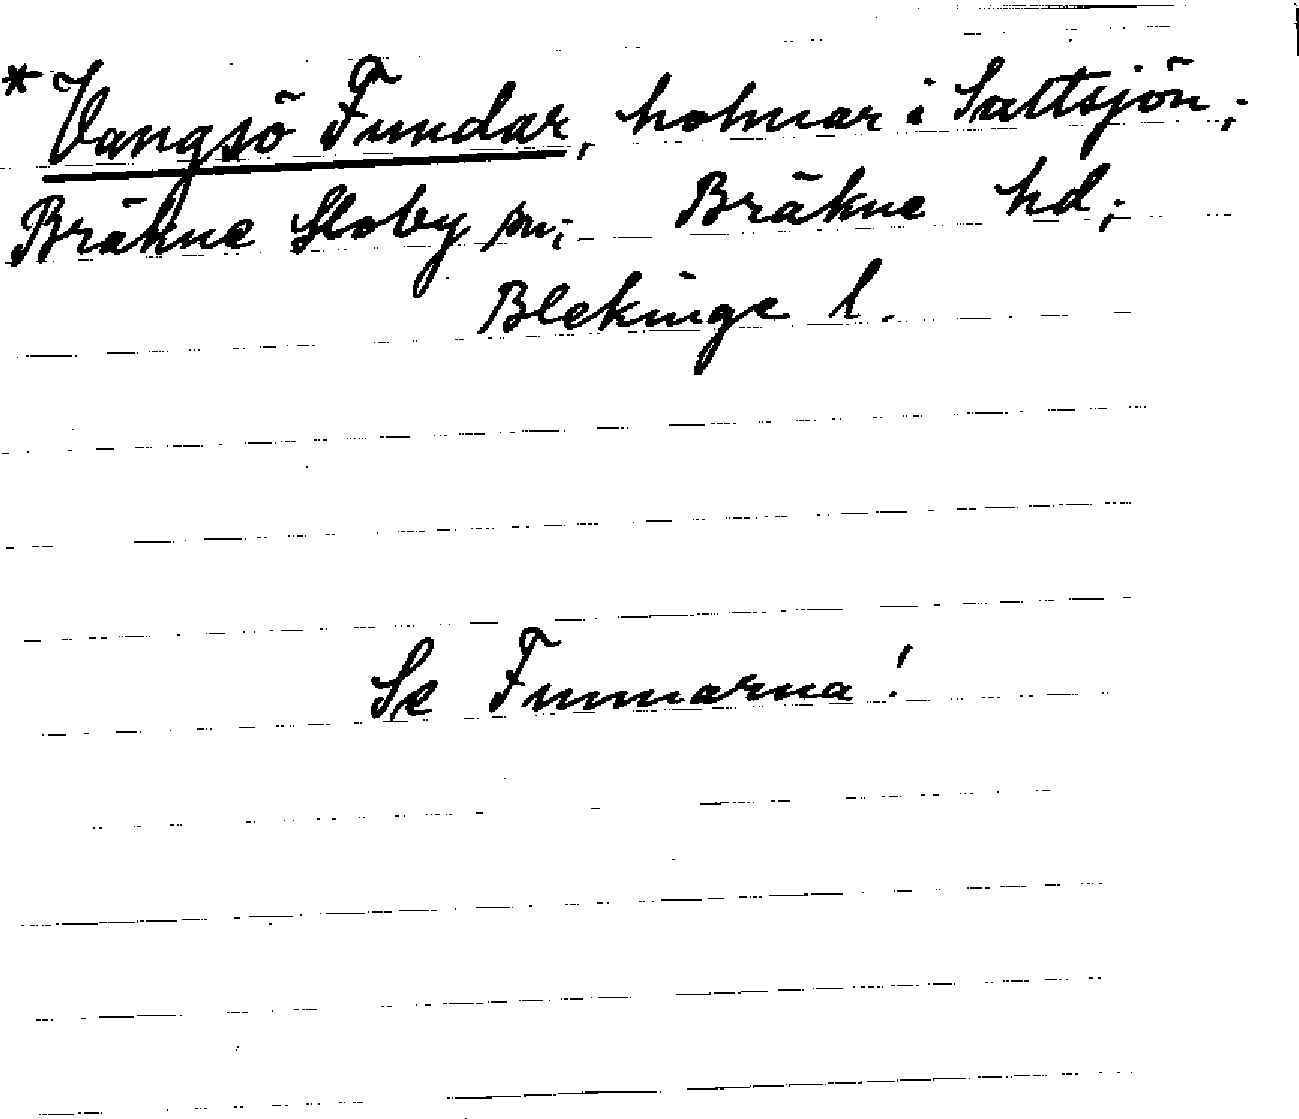 * Vangsö Fundar, holmar i Saltsjön;
Bräkne Hoby sn; Bräkne hd;
Blekinge l.
Se Funnarna!